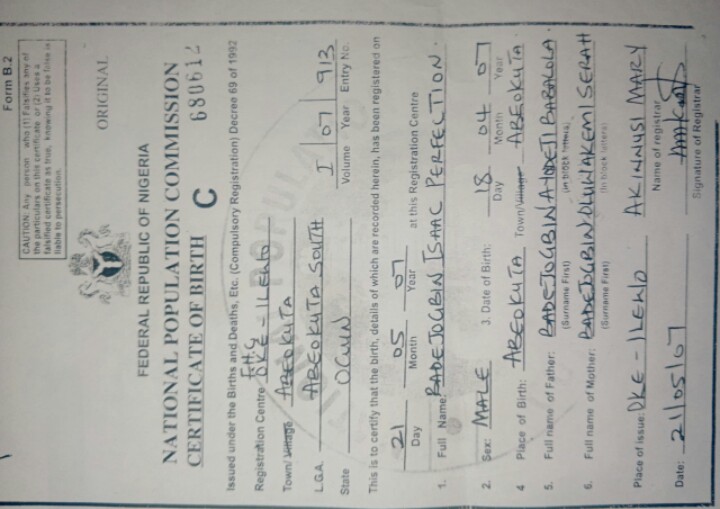 Form B.2
CAUTION: Any person who (1) Falsifies any of
the particulars on this certificate or (2) Uses a
falsified certificate as true, knowing it to be false is
liable to persecution.
ORIGINAL
FEDERAL REPUBLIC OF NIGERIA
NATIONAL POPULATION COMMISSION
CERTIFICATE OF BIRTH C 680612
Issued under the Births and Deaths, Etc. (Compulsory Registration) Decree 69 of 1992
Registration Centre OKE-ILEWO
Town/Village ABEOKUTA
L.G.A. ABEOKUTA SOUTH I 07 913
State OGUN Volume Year Entry No.
This is to certify that the birth, details of which are recorded herein, has been registered on
21 05 07 at this Registration Centre
Day Month Year
1. Full Name: BADEJOGBIN ISAAC PERFECTION.
2. Sex: MALE 3. Date of Birth: 18 04 07
Day Month Year
4 Place of Birth: ABEOKUTA Town/Village ABEOKUTA.
5. Full name of Father: BADEJOGBIN AYODEJI BABALOLA.
(Surname First) (In block letters)
6. Full name of Mother: BADEJOGBIN OLUWAKEMI SERAH
(Surname First) (In block letters)
Place of issue: OKE-ILEWO AKINNUSI MARY
Name of registrar
Date: 21/05/07
Signature of Registrar